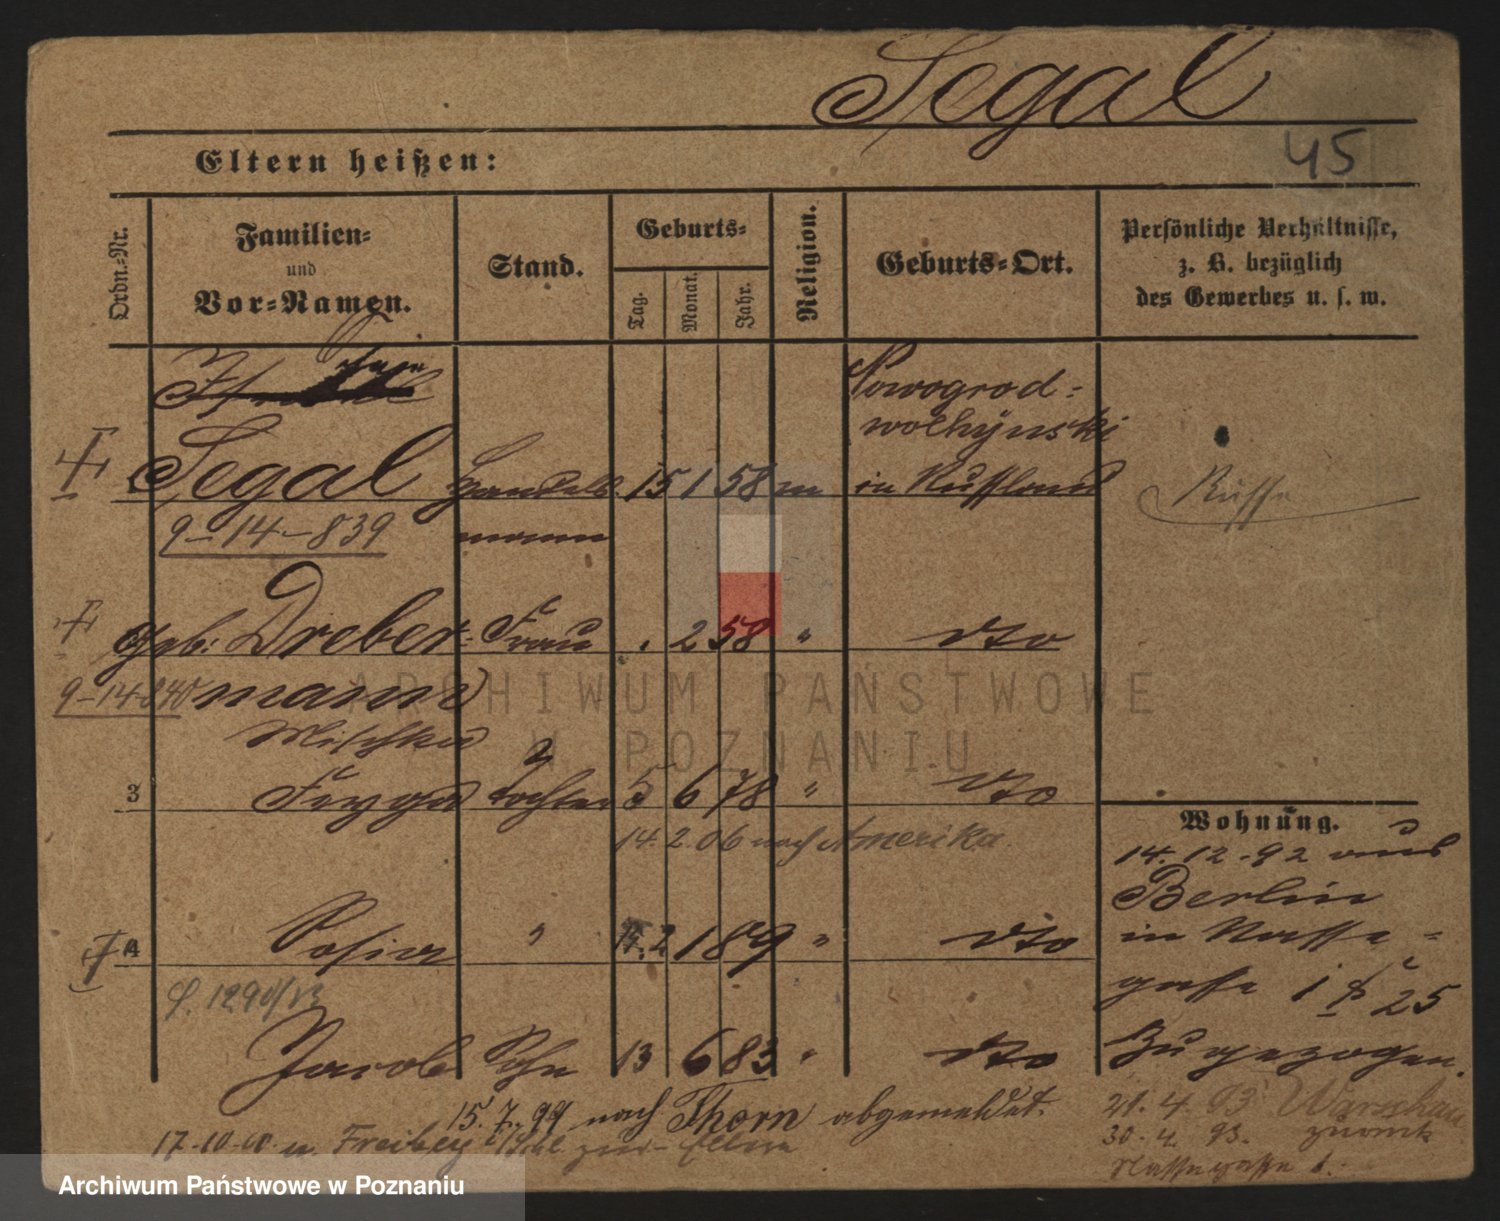 Segal
45
Eltern heißen:
Ordn.-Nr.
Familien-
und
Vor-Namen.
Stand.
Geburts-
Tag.
Monat.
Jahr.
Religion.
Geburts-Ort.
Persönliche Verhältnisse,
z. B. bezüglich
des Gewerbes u. s. w.
Nowogrod-
wolhynski
Segal Handels 15 1 58 m in Russland
Russe
9-14-839 mann
geb. Dreber- Frau . 2 58 " dto
9-14-840 mann
Mischka
3 Feyga Tochter 5 6 78 " dto
14.2.06 nach Amerika.
Wohnung.
14.12.92 aus
Berlin
in Nasse-
gasse 1 25
zugezogen.
4 Sofia " 15.2 189 " dto
Jacob Sohn 13 6 83 " dto
15.7.99 nach Thorn abgemeldet.
17.10.00 zur
21.4.93 Warschau
30.4.93. zurück
Nassegasse 1.
ARCHIWUM PAŃSTWOWE
W POZNANIU
Archiwum Państwowe w Poznaniu